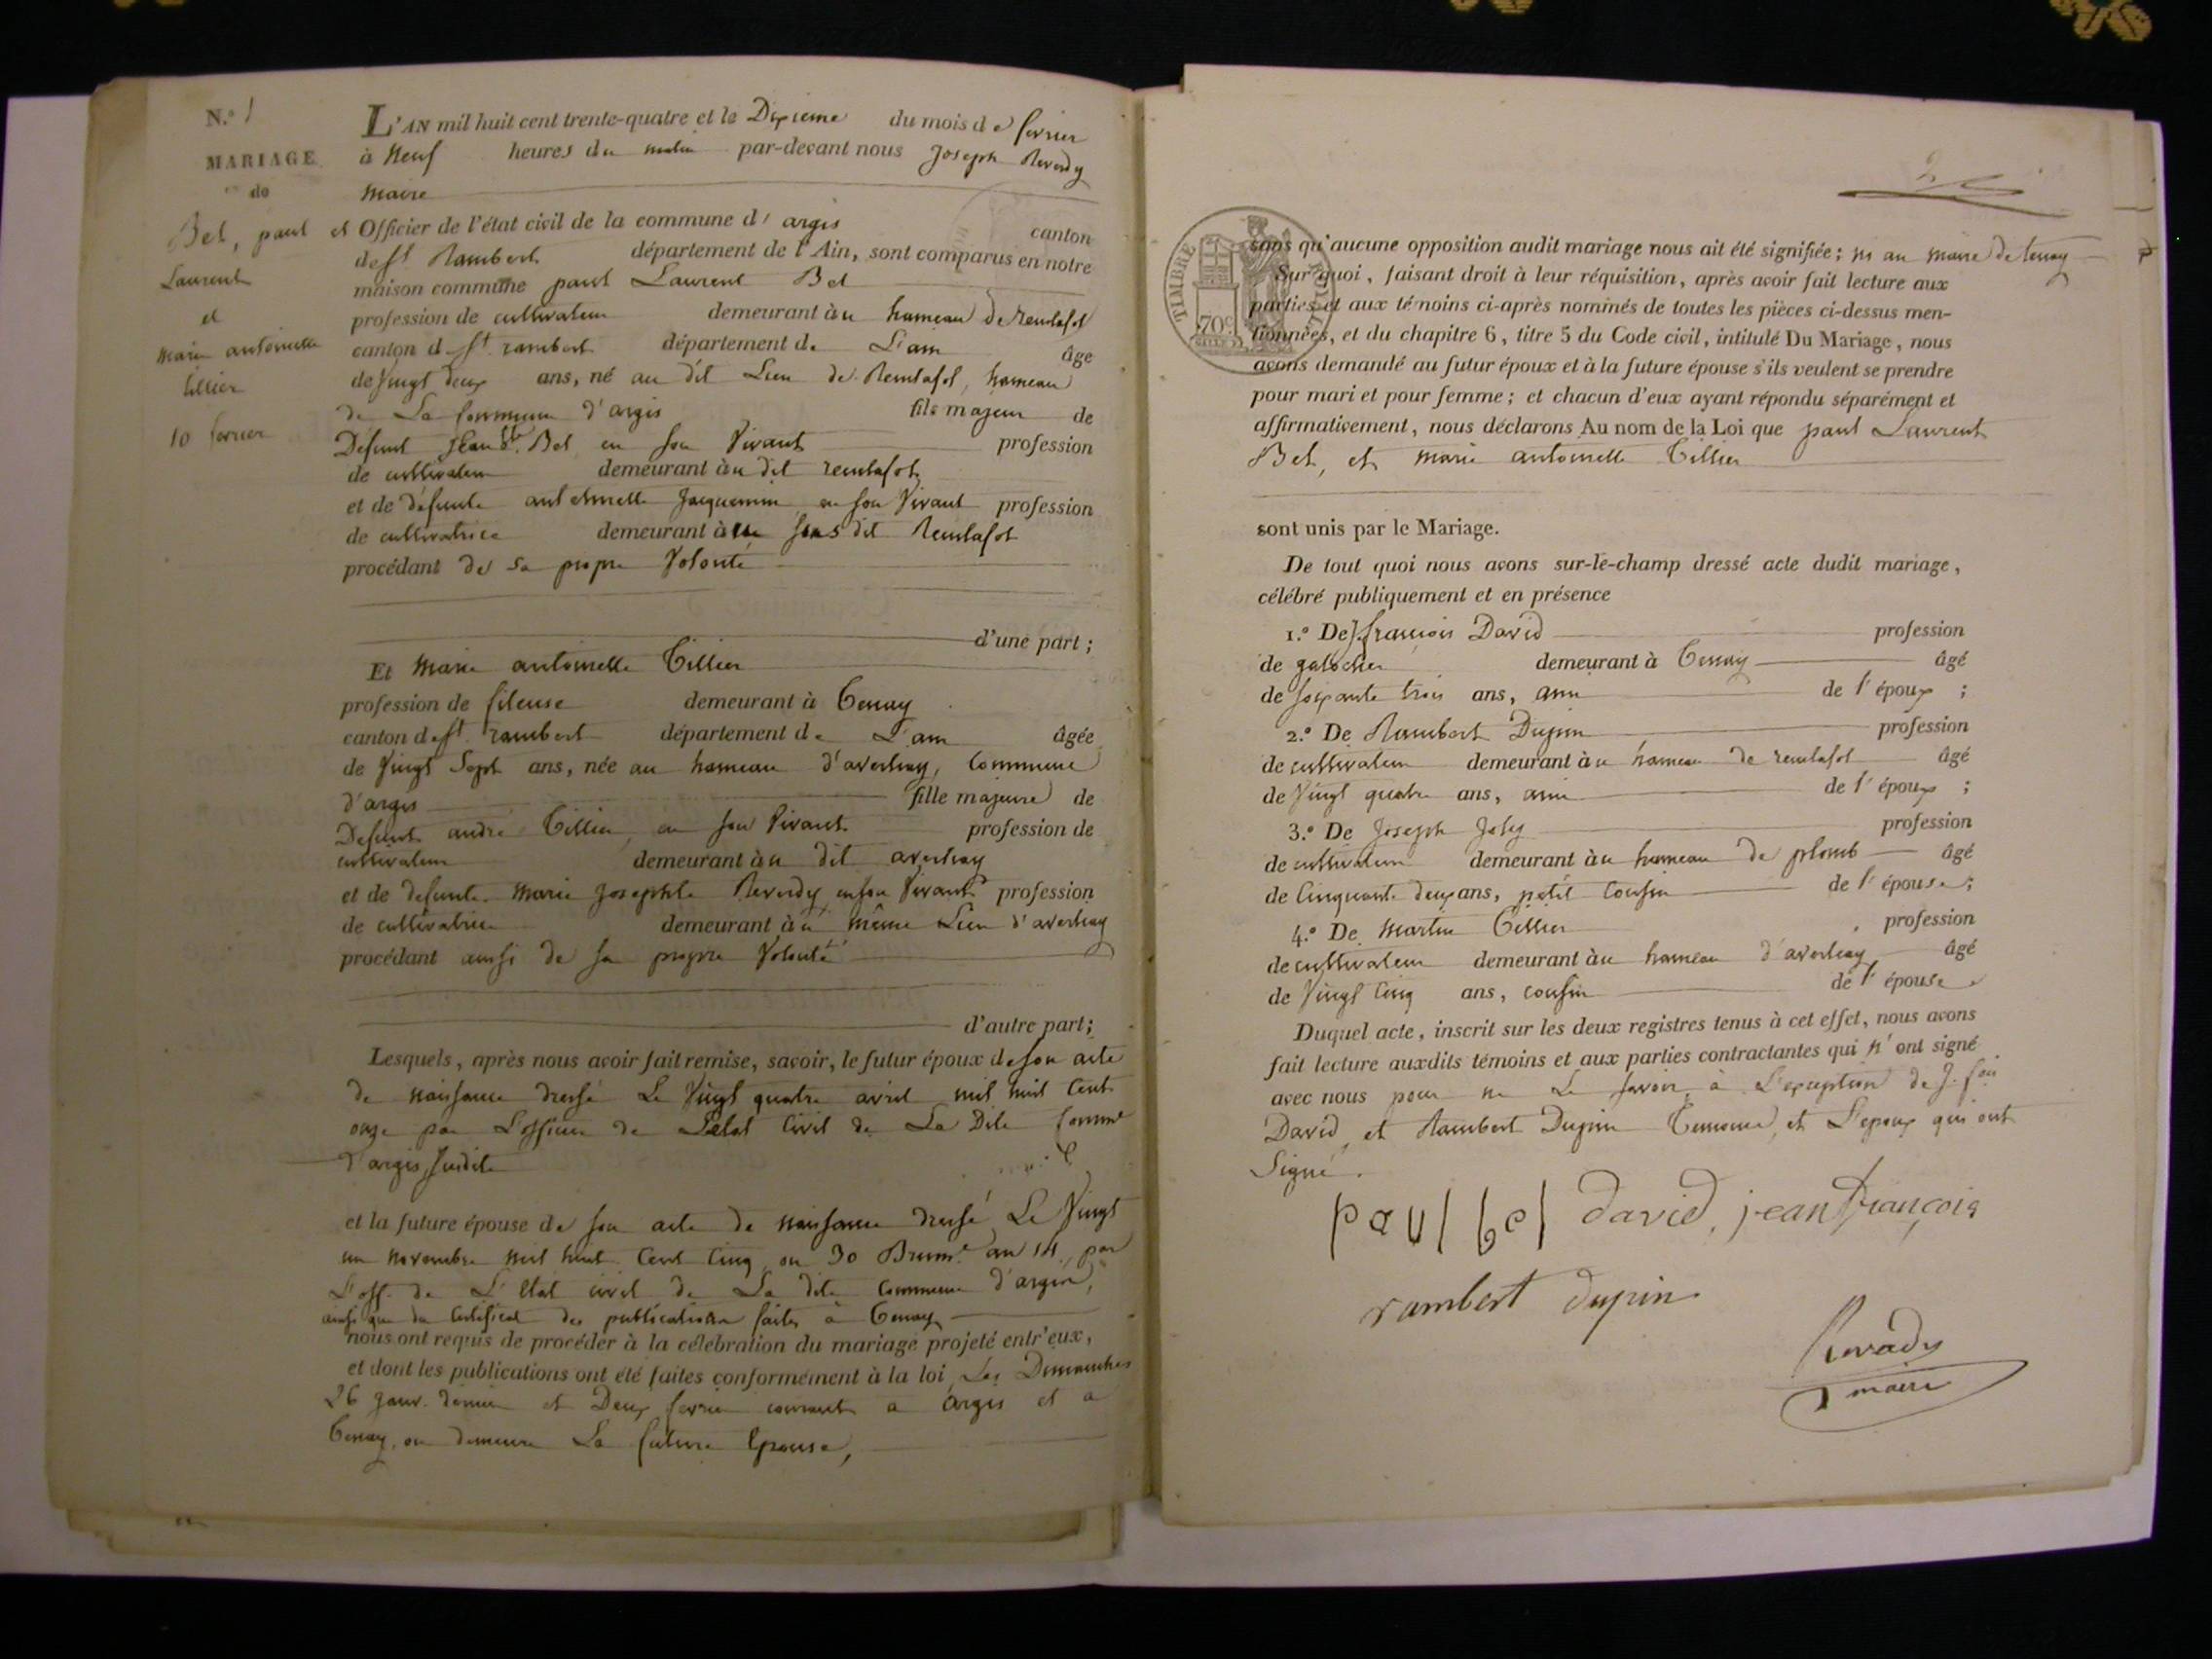 N.º 1
MARIAGE
de
Bel, paul
Laurent
et
marie antoinette
tillier
10 fevrier
L'AN mil huit cent trente-quatre et le Dixieme du mois de fevrier
à Neuf heures du matin par-devant nous Joseph Reverdy
maire
et Officier de l'état civil de la commune d' argis canton
de St. Rambert département de l'Ain, sont comparus en notre
maison commune paul Laurent Bel
profession de cultivateur demeurant àu hameau de reculafol
canton d St. rambert département de L'ain âge
de Vingt deux ans, né au dit Lieu de Reculafol, hameau
de La Commune d'argis fils majeur de
Defunt Jean Bte. Bel en son Vivant profession
de cultivateur demeurant àu dit reculafol
et de défunte anthelmette Jacquemin en son Vivant profession
de cultivatrice demeurant àu sus dit Reculafol
procédant de sa propre Volonté
d'une part ;
Et marie antoinette Tillier
profession de fileuse demeurant à Tenay
canton de St. rambert département de L'ain âgée
de Vingt Sept ans, née au hameau d'averliay, Commune
d'argis fille majeure de
Defunt andré Tillier, en son Vivant profession de
cultivateur demeurant àu dit averliay
et de defunte marie Josephte Reverdy en son Vivant profession
de cultivatrice demeurant àu même Lieu d'averliay
procédant aussi de sa propre Volonté
d'autre part;
Lesquels, après nous avoir fait remise, savoir, le futur époux de son acte
de naissance dressé Le Vingt quatre avril mil huit Cent
onze par L'officier de L'etat Civil de La Dite Comme
d'argis susdite
et la future épouse de son acte de naissance dressé Le Vingt
un novembre mil huit Cent Cinq ou 30 Brumre an 14, par
L'off. de L'Etat civil de La dite Commune d'argis,
ainsi que du Certificat des publications faites à Tenay
nous ont requis de procéder à la célébration du mariage projeté entr'eux,
et dont les publications ont été faites conformément à la loi, Les Dimanches
26 janv. dernier et Deux fevrier courant a argis et a
Tenay, ou demeure La future Epouse,
2
TIMBRE ROYAL
70 c
sans qu'aucune opposition audit mariage nous ait été signifiée; ni au maire de tenay
Sur quoi, faisant droit à leur réquisition, après avoir fait lecture aux
parties et aux témoins ci-après nommés de toutes les pièces ci-dessus men-
tionnées, et du chapitre 6, titre 5 du Code civil, intitulé Du Mariage, nous
avons demandé au futur époux et à la future épouse s'ils veulent se prendre
pour mari et pour femme; et chacun d'eux ayant répondu séparément et
affirmativement, nous déclarons Au nom de la Loi que paul Laurent
Bel, et marie antoinette Tillier
sont unis par le Mariage.
De tout quoi nous avons sur-le-champ dressé acte dudit mariage,
célébré publiquement et en présence
1.º De J. françois David profession
de galochier demeurant à Tenay âgé
de soixante trois ans, ami de l'époux ;
2.º De Rambert Dupin profession
de cultivateur demeurant àu hameau de reculafol âgé
de Vingt quatre ans, ami de l'époux ;
3.º De Joseph Joly profession
de cultivateur demeurant àu hameau de plomb âgé
de Cinquante deux ans, petit Cousin de l'épouse;
4.º De martin Tillier profession
de cultivateur demeurant àu hameau d'averliay âgé
de Vingt Cinq ans, cousin de l'épouse
Duquel acte, inscrit sur les deux registres tenus à cet effet, nous avons
fait lecture auxdits témoins et aux parties contractantes qui n'ont signé
avec nous pour ne Le savoir, à L'exception de J. fois
David, et Rambert Dupin Temoins, et L'epoux qui ont
Signé.
paul bel david, jean françois
rambert dupin
Reverdy
maire